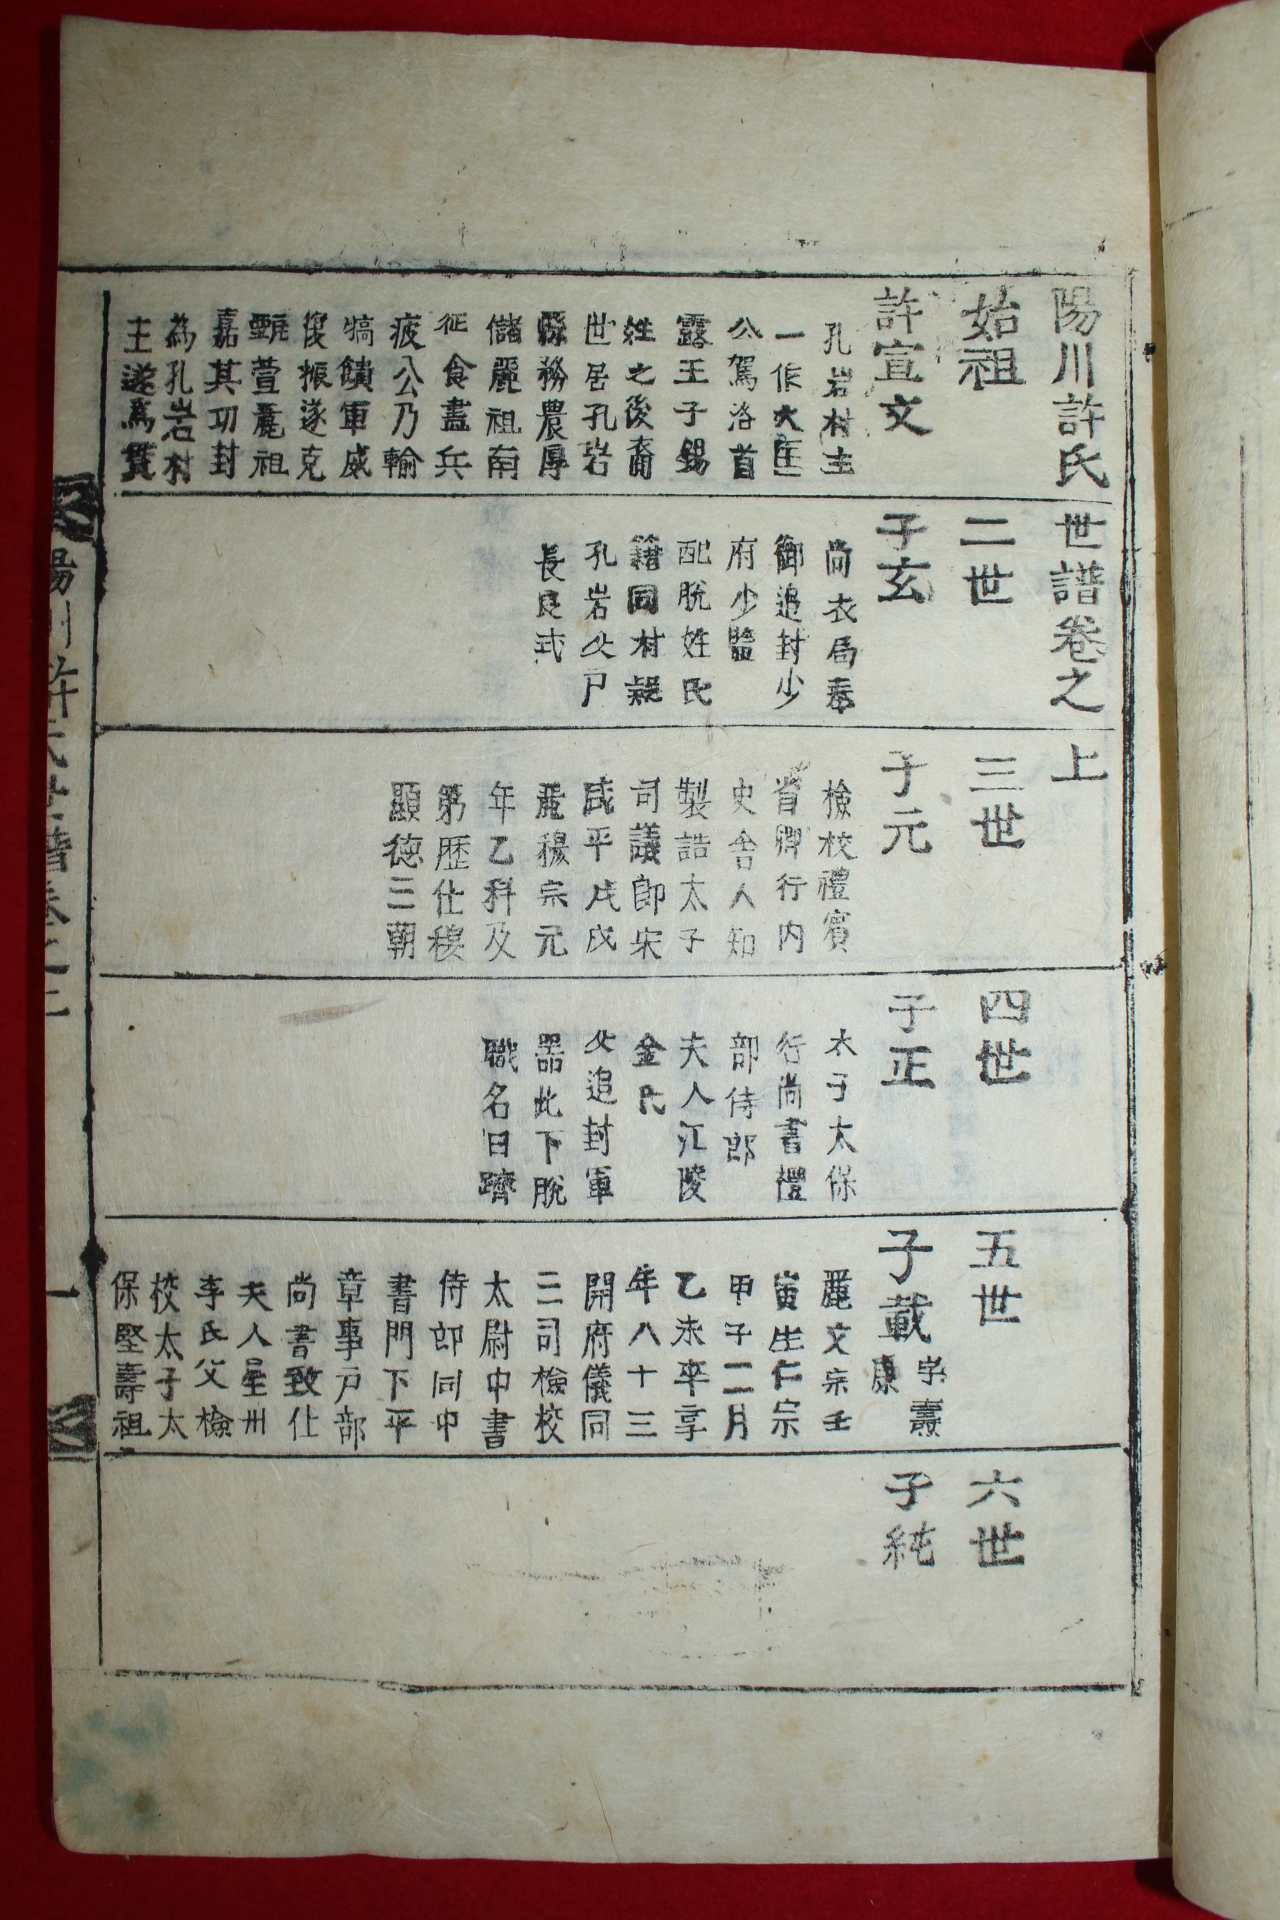 陽川許氏世譜卷之上
始祖
許宣文
孔岩村主
一作大匡
公駕洛首
露王子錫
姓之後裔
世居孔岩
縣務農厚
儲麗祖南
征食盡兵
疲公乃輸
犒饋軍威
復振遂克
甄萱麗祖
嘉其功封
為孔岩村
主遂為貫
二世
子玄
尚衣局奉
御追封少
府少監
配脫姓氏
籍同村
孔岩父戶
長良式
三世
子元
檢校禮賓
省卿行內
史舍人知
製誥太子
司議郎宋
咸平戊戌
麗穆宗元
年乙科及
第歷仕穆
顯德三朝
四世
子正
太子太保
行尚書禮
部侍郎
夫人江陵
金氏
父追封軍
器此下脫
職名曰躋
五世
子載字壽康
麗文宗壬
寅生仁宗
甲子二月
乙未卒享
年八十三
開府儀同
三司檢校
太尉中書
侍郎同中
書門下平
章事戶部
尚書致仕
夫人星州
李氏父檢
校太子太
保堅壽祖
六世
子純
陽川許氏世譜卷之上
一